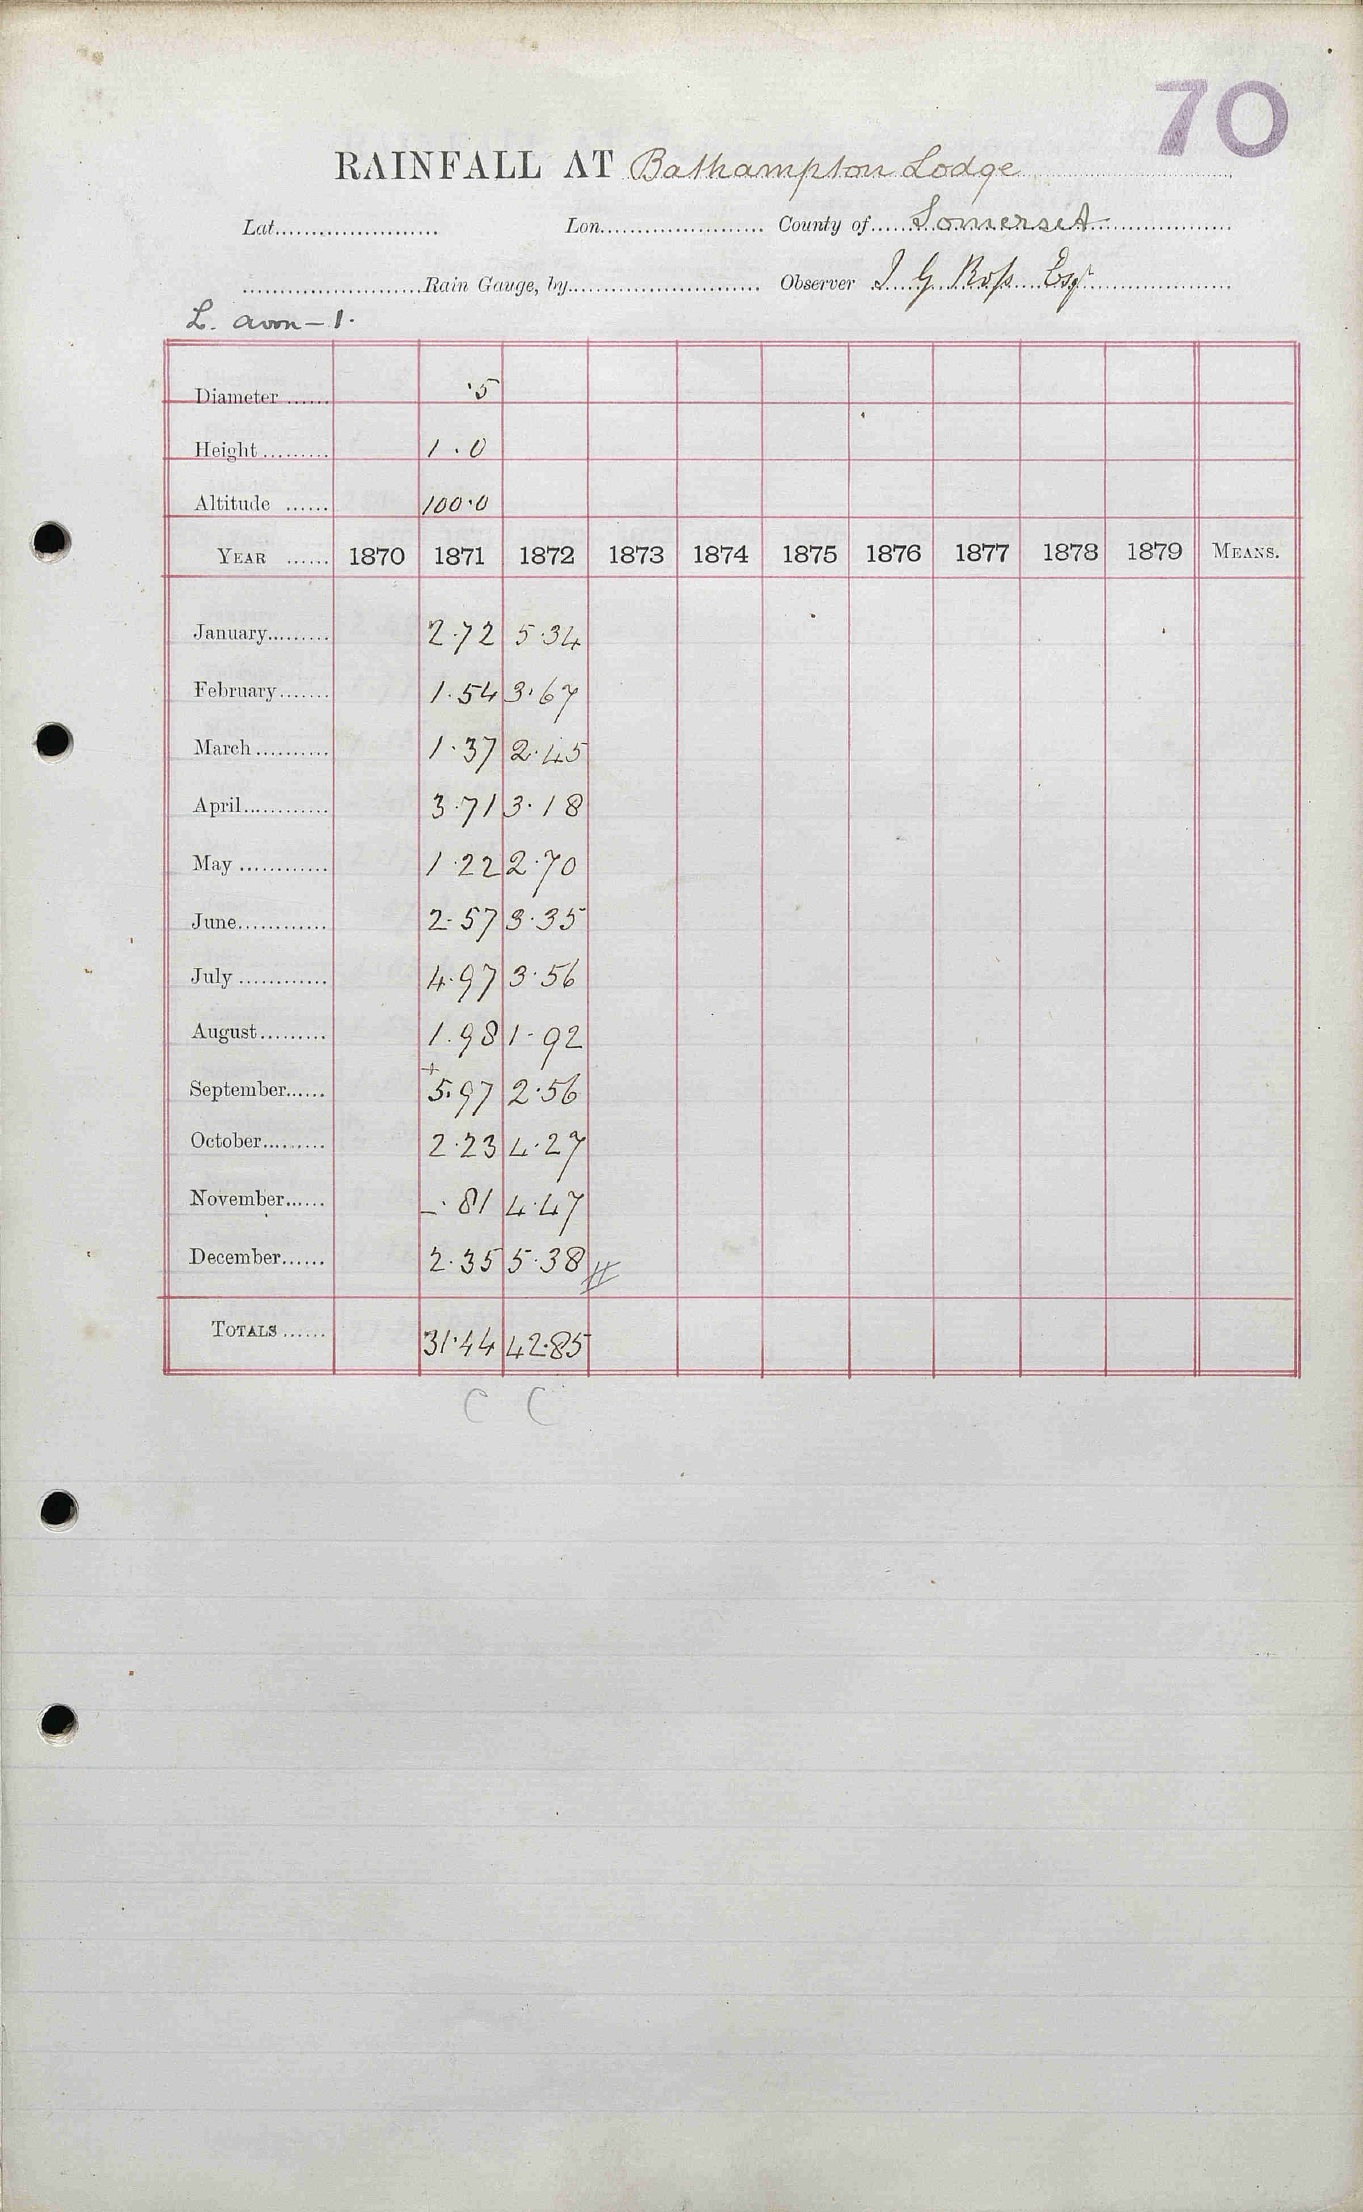 70
RAINFALL AT Bathampton Lodge
Lat...................... Lon...................... County of Somerset
Rain Gauge, by.......................... Observer J G Ross Esqr
L. avon – 1.
Diameter ...... ·5
Height ......... 1.0
Altitude ...... 100·0
YEAR ...... 1870 1871 1872 1873 1874 1875 1876 1877 1878 1879 MEANS.
January......... 2·72 5·34
February....... 1.54 3.67
March.......... 1·37 2·45
April............ 3·71 3·18
May ............ 1·22 2·70
June............ 2·57 3·35
July ............ 4·97 3·56
August......... 1.98 1·92
+
September...... 5.97 2·56
October......... 2·23 4·27
November...... –·81 4·47
December...... 2·35 5·38 #
TOTALS ...... 31·44 42·85
C C